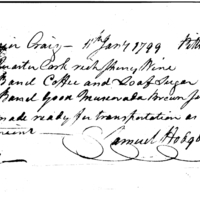 Craig — 11th Jany 1799
Quarter Cask rich Sherry Wine
Barrel Coffee and Loaf Sugar
Barrel Good Muscovada Brown
made ready for transportation as
Samuel Hodgd